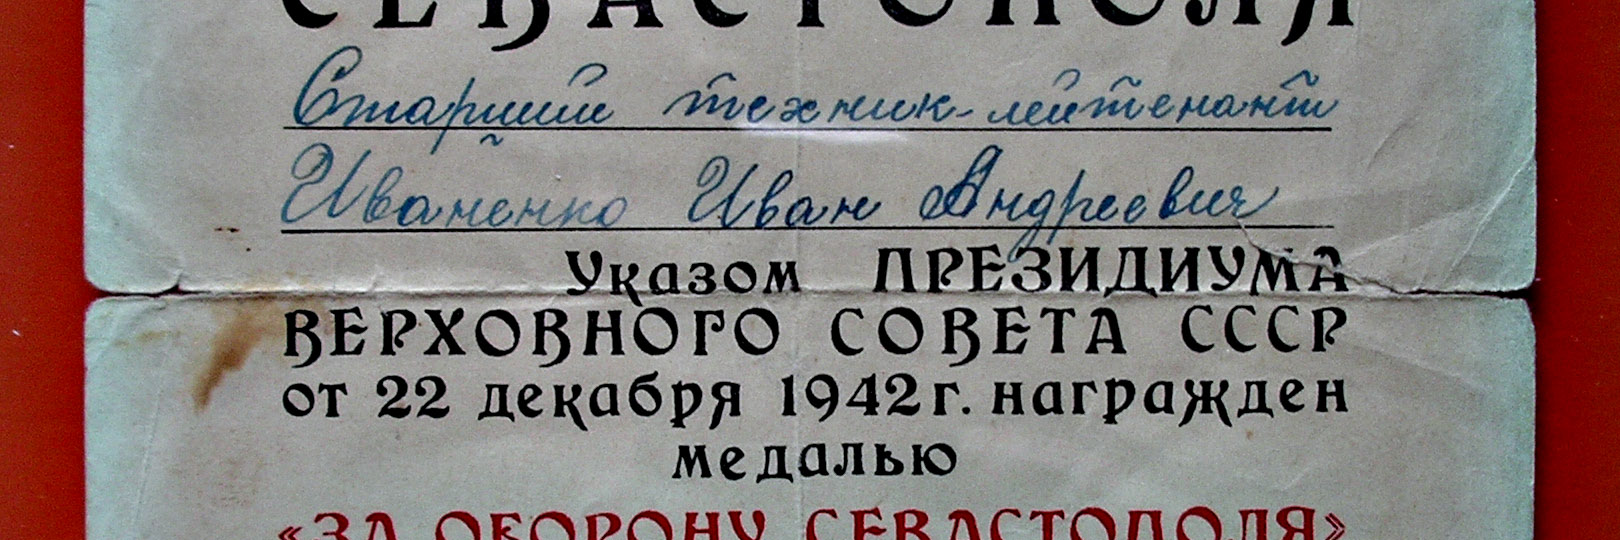 СЕВАСТОПОЛЯ
Старший техник-лейтенант
Иваненко Иван Андреевич
Указом ПРЕЗИДИУМА
ВЕРХОВНОГО СОВЕТА СССР
от 22 декабря 1942г. награжден
медалью
«ЗА ОБОРОНУ СЕВАСТОПОЛЯ»